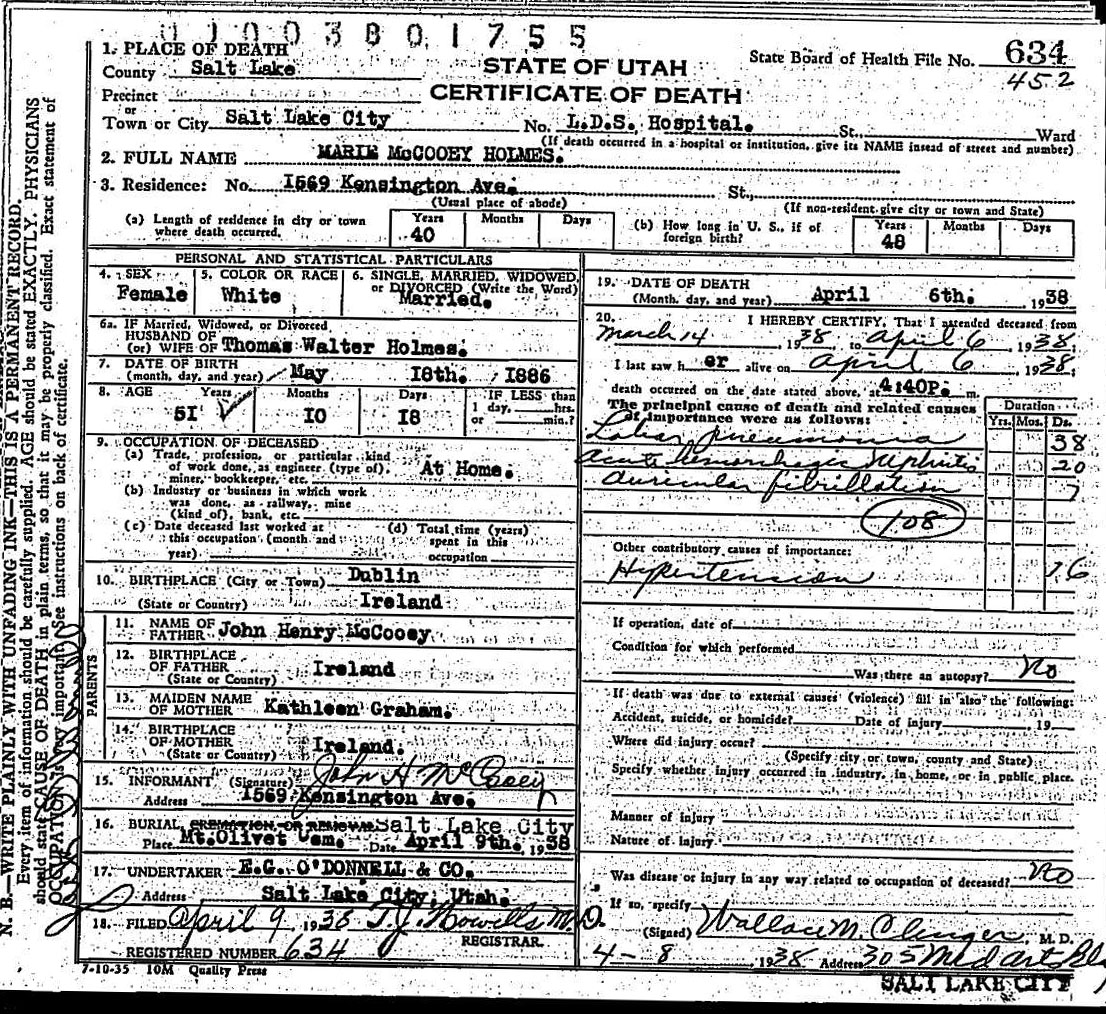 0100380.1755
1. PLACE OF DEATH
County Salt Lake
STATE OF UTAH
State Board of Health File No. 634
452
CERTIFICATE OF DEATH
Precinct
or
Town or City Salt Lake City No. L.D.S. Hospital. St., Ward
(If death occurred in a hospital or institution, give its NAME instead of street and number)
2. FULL NAME MARIE McCOOEY HOLMES.
3. Residence: No. I569 Kensington Ave. St.,
(Usual place of abode) (If non-resident give city or town and State)
(a) Length of residence in city or town where death occurred. Years 40 Months Days
(b) How long in U. S., if of foreign birth? Years 48 Months Days
PERSONAL AND STATISTICAL PARTICULARS
4. SEX 5. COLOR OR RACE 6. SINGLE, MARRIED, WIDOWED,
or DIVORCED (Write the Word)
Female White Married.
6a. IF Married, Widowed, or Divorced
HUSBAND OF
(or) WIFE OF Thomas Walter Holmes.
7. DATE OF BIRTH
(month, day, and year) May I8th. I886
8. AGE Years Months Days IF LESS than
1 day, hrs.
or min.?
5I I0 I8
9. OCCUPATION OF DECEASED
(a) Trade, profession, or particular kind
of work done, as engineer (type of),
miner, bookkeeper, etc. At Home.
(b) Industry or business in which work
was done, as railway, mine
(kind of), bank, etc.
(c) Date deceased last worked at
this occupation (month and
year)
(d) Total time (years)
spent in this
occupation
10. BIRTHPLACE (City or Town) Dublin
(State or Country) Ireland
PARENTS
11. NAME OF
FATHER John Henry McCooey
12. BIRTHPLACE
OF FATHER Ireland
(State or Country)
13. MAIDEN NAME
OF MOTHER Kathleen Graham.
14. BIRTHPLACE
OF MOTHER Ireland.
(State or Country)
15. INFORMANT (Signature) John H McCooey
Address I569 Kensington Ave.
16. BURIAL, CREMATION, OR REMOVAL Salt Lake City
Place Mt.Olivet Cem. Date April 9th. 1938
17. UNDERTAKER E.G. O'DONNELL & CO.
Address Salt Lake City, Utah.
18. FILED April 9 1938 T.J. Howells M.D.
REGISTRAR
REGISTERED NUMBER 634
7-10-35 10M Quality Press
19. DATE OF DEATH
(Month, day, and year) April 6th. 1938
20. I HEREBY CERTIFY, That I attended deceased from
March 14, 1938 to April 6 1938
I last saw her alive on April 6, 1938;
death occurred on the date stated above, at 4:40P. m.
The principal cause of death and related causes
of importance were as follows:
Duration
Yrs. Mos. Ds.
Lobar pneumonia 38
Acute hemorrhagic Nephritis 20
Auricular fibrillation 7
108
Other contributory causes of importance:
Hypertension 16
If operation, date of
Condition for which performed
Was there an autopsy? No
If death was due to external causes (violence) fill in also the following:
Accident, suicide, or homicide? Date of injury 19
Where did injury occur?
(Specify city or town, county and State)
Specify whether injury occurred in industry, in home, or in public place.
Manner of injury
Nature of injury
Was disease or injury in any way related to occupation of deceased? No
If so, specify
(Signed) Wallace M. Clinger, M. D.
4-8 1938 Address 305 Med Arts Bldg
SALT LAKE CITY
N. B.—WRITE PLAINLY WITH UNFADING INK—THIS IS A PERMANENT RECORD.
Every item of information should be carefully supplied. AGE should be stated EXACTLY. PHYSICIANS
should state CAUSE OF DEATH in plain terms, so that it may be properly classified. Exact statement of
OCCUPATION is very important. See instructions on back of certificate.